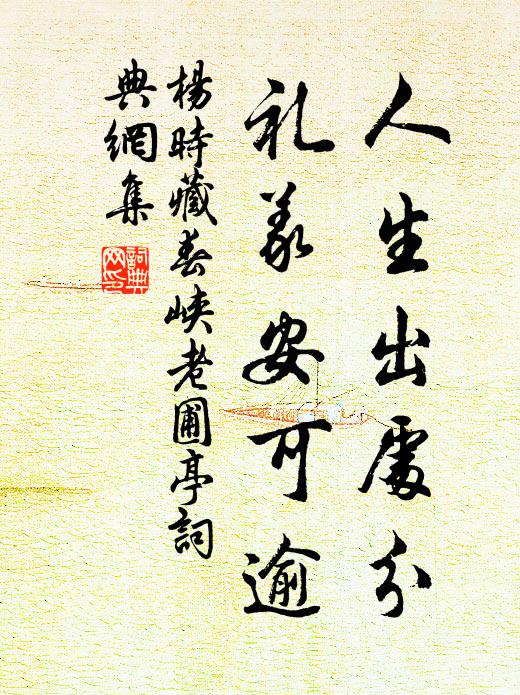 人生出處分
礼义安可逾
楊時藏春峽老圃亭詞
典網集
詞典
网印